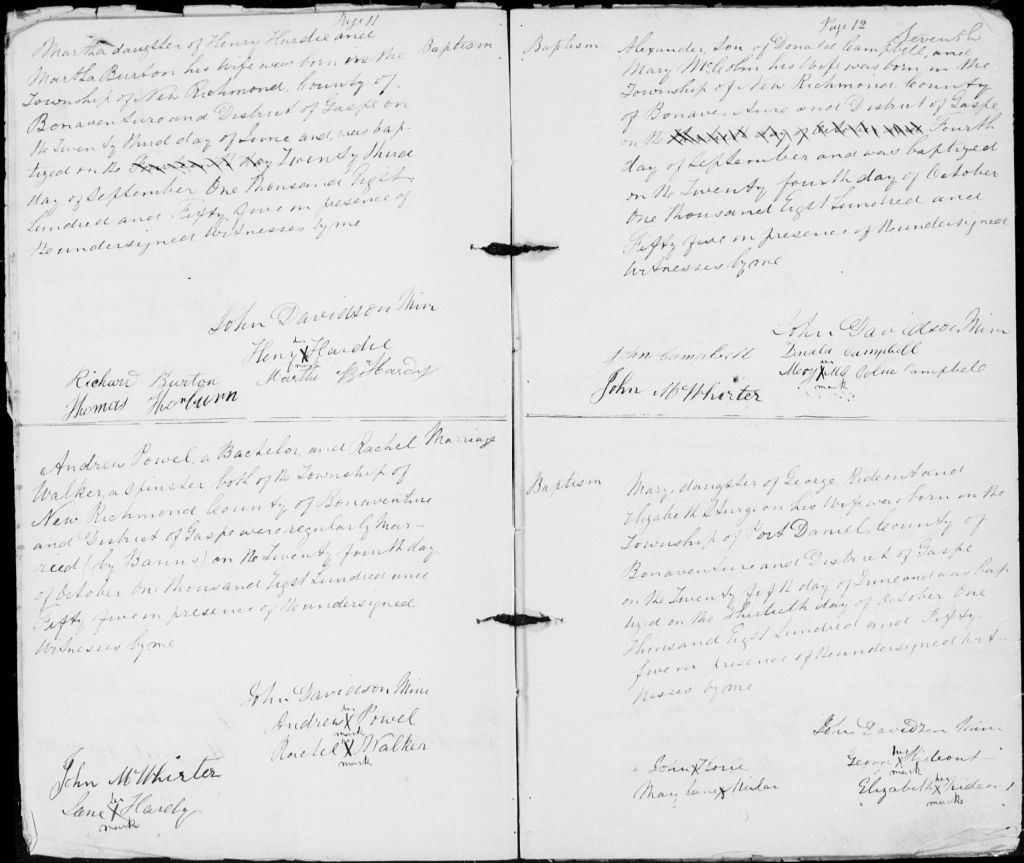 Page 11
Martha daughter of Henry Hardie and
Martha Burton his Wife was born in the
Baptism
Township of New Richmond, County of
Bonaventure and District of Gaspe on
the Twenty third day of June and was bap-
tized on the Twenty third
day of September One Thousand Eight
Hundred and Fifty five in presence of
the undersigned Witnesses by me
John Davidson Minr
Henry X Hardie
his
mark
Martha Hardy
Richard Burton
Thomas Thorburn
Marriage
Andrew Powel, a Bachelor, and Rachel
Walker, a Spinster both of the Township of
New Richmond County of Bonaventure
and District of Gaspe were regularly Mar-
reed (by Banns) on the Twenty fourth day
of October One thousand Eight Hundred and
Fifty five in presence of the undersigned
Witnesses by me
John Davidson Minr
his
Andrew X Powel
Rachel X Walker
mark
John McWhirter
her
Jane X Hardy
mark
Page 12
Seventh
Baptism
Alexander, Son of Donald Campbell, and
Mary McColm his Wife was born in the
Township of New Richmond County
of Bonaventure and District of Gaspe
on the Fourth
day of September and was baptized
on the Twenty fourth day of October
One thousand Eight Hundred and
Fifty five in presence of the undersigned
Witnesses by me
John Davidson, Minr
John Campbell
Donald Campbell
her
Mary X McColm Campbell
mark
John McWhirter
Baptism
Mary, daughter of George Rideout and
Elizabeth Sturgeon his Wife was born in the
Township of Port Daniel, County of
Bonaventure and District of Gaspe
on the Twenty fifth day of June and was bap
tized on the Thirtieth day of October One
Thousand Eight Hundred and Fifty
five in presence of the undersigned Wit-
nesses by me
John Davidson Minr
his
George X Rideout
mark
her
Elizabeth X Rideout
mark
John X
Mary Jane X